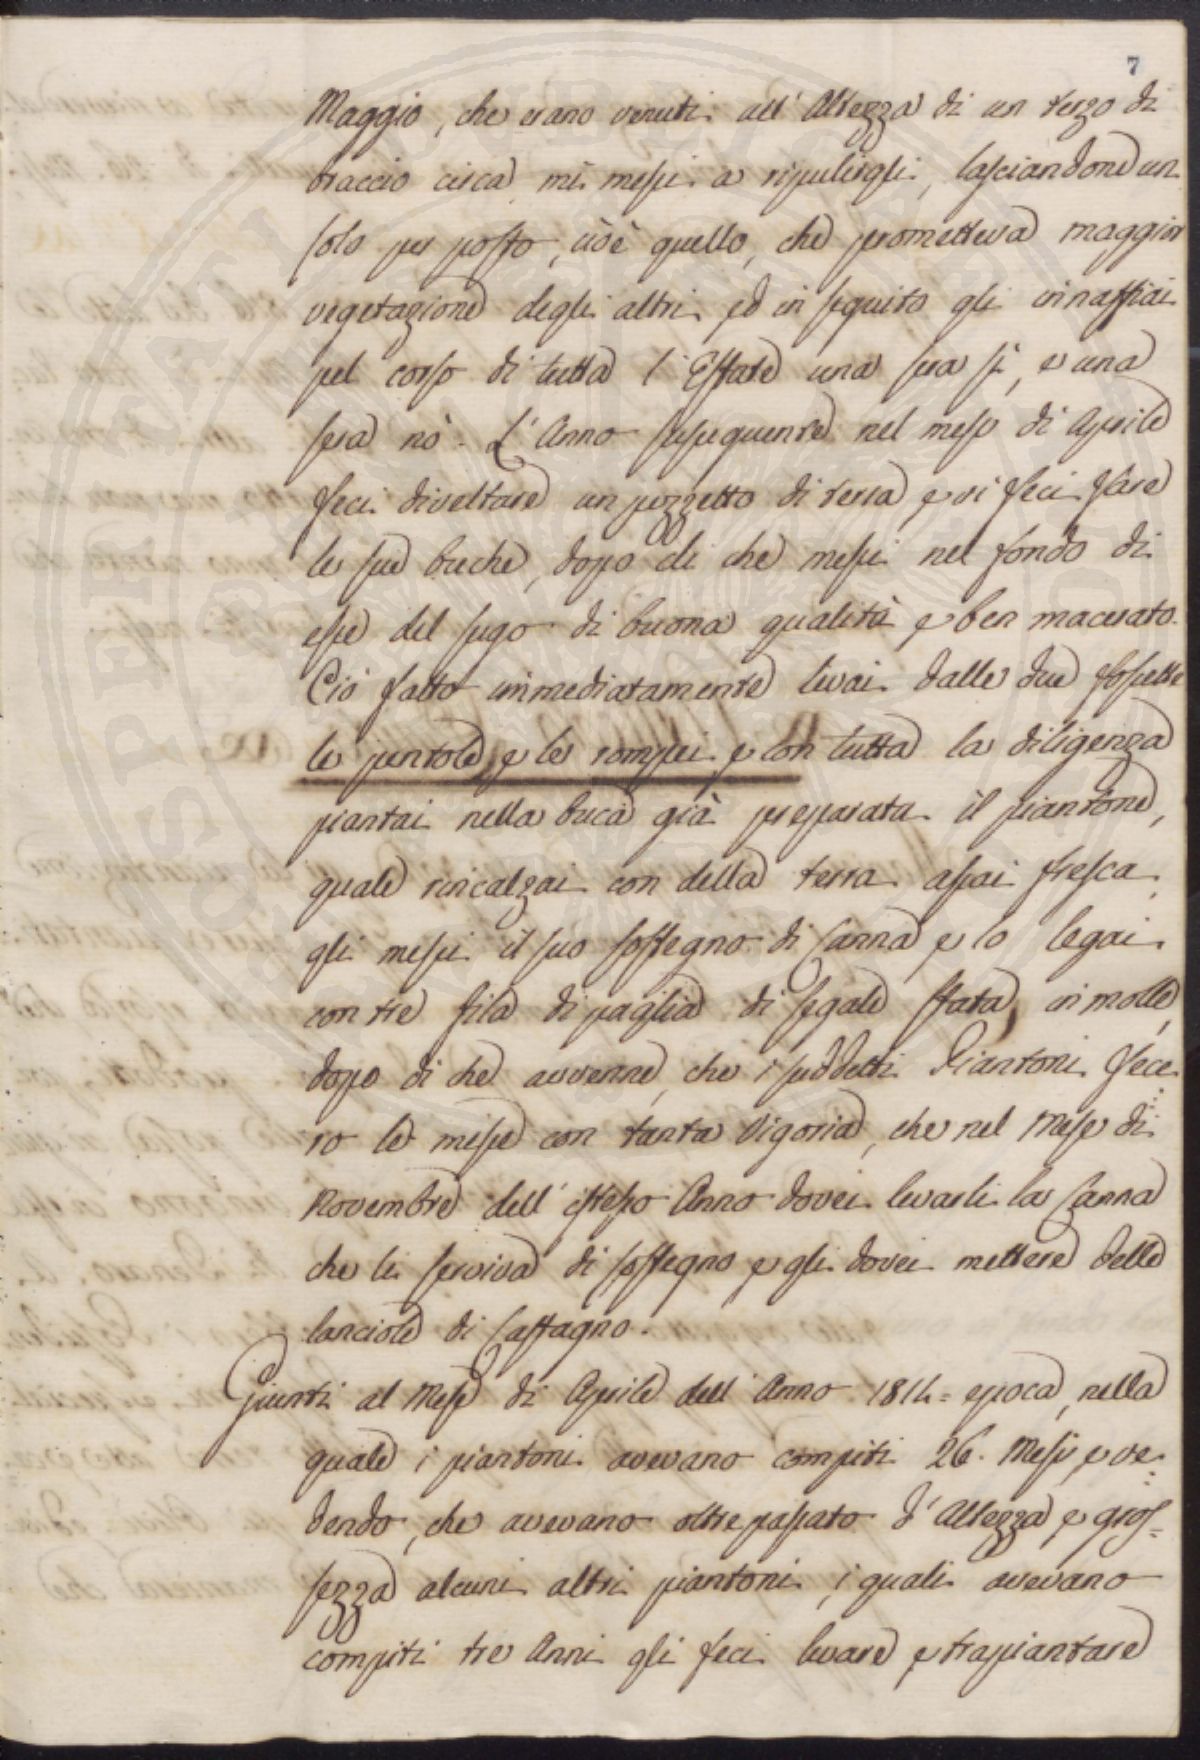 7
Maggio, che erano venuti all'Altezza di un terzo di
braccio circa mi messi a ripulirgli, lasciandone un
solo per posto, cioè quello, che prometteva maggior
vegetazione degli altri, ed in seguito gli innaffiai
pel corso di tutta l'Estate una sera sì, e una
sera nò. L'Anno susseguente nel mese di Aprile
feci diveltare un pezzetto di terra, e vi feci fare
le sue buche, dopo di che messi nel fondo di
esse del sugo di buona qualità e ben macerato.
Ciò fatto immediatamente levai dalle due fossette
le pentole, e le rompei, e con tutta la diligenza
piantai nella buca già preparata il piantone,
quale rincalzai con della terra assai fresca,
gli messi il suo sostegno di Canna e lo legai
con tre fila di paglia di segale stata in molle,
dopo di che avvenne, che i suddetti Piantoni fece:
ro le messe con tanta Vigoria, che nel Mese di
Novembre dell'istesso Anno dovei levarli la Canna
che li serviva di sostegno e gli dovei mettere delle
lanciole di Castagno.
Giunti al Mese di Aprile dell'Anno 1814= epoca, nella
quale i piantoni avevano compiti 26. Mesi, e ve:
dendo, che avevano oltrepassato d'Altezza, e gros=
sezza alcuni altri piantoni, i quali avevano
compiti tre Anni gli feci levare, e trapiantare
OSPERITATI PUBLICAE